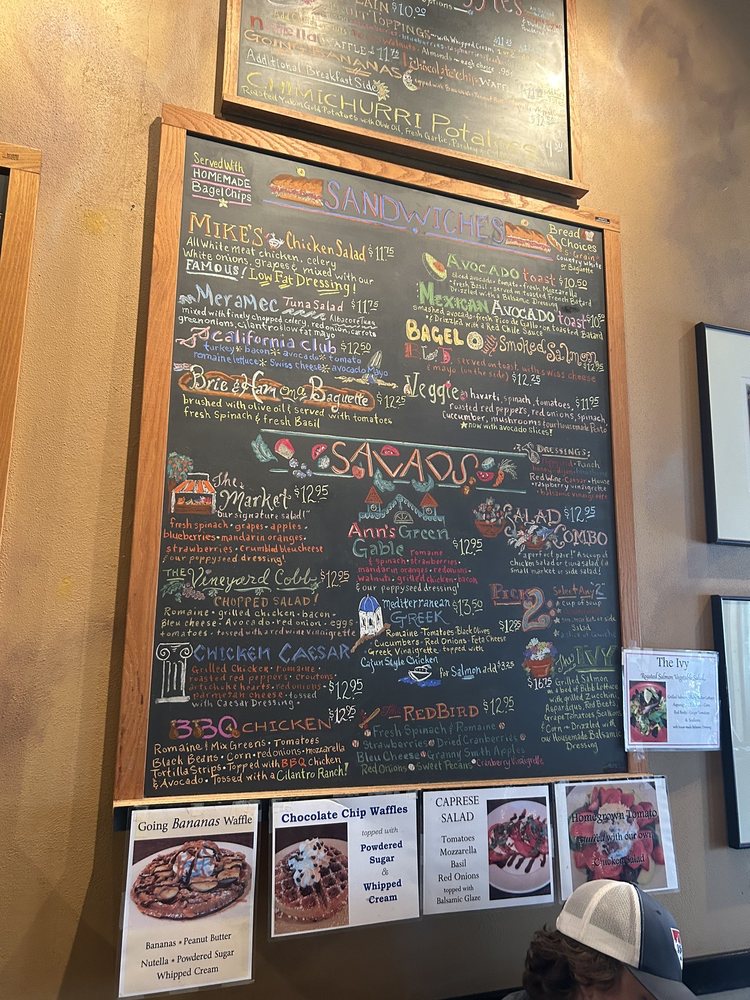 PLAIN $10.00
TOPPINGS - with Whipped Cream
Nutella WAFFLE $11.75
Almonds - each
GOING BANANAS
Chocolate chip WAFFLE
Additional Breakfast Side
CHIMICHURRI Potatoes
Roasted Yukon Gold Potatoes with Olive Oil, Fresh Garlic, Parsley
Served With
HOMEMADE
Bagel Chips
SANDWICHES
Bread
Choices
5-Grain
Country White
or Baguette
MIKE'S Chicken Salad $11.75
All White meat chicken, celery
White onions, grapes & mixed with our
FAMOUS! Low Fat Dressing!
MERAMEC Tuna Salad $11.75
Albacore Tuna
mixed with finely chopped celery, red onion, carrots
green onions, cilantro & low fat mayo
California Club $12.50
turkey * bacon * avocado * tomato
romaine lettuce * Swiss cheese * avocado Mayo
Brie & Ham on a Baguette $12.25
brushed with olive oil & served with tomatoes
fresh Spinach & fresh Basil
AVOCADO toast $10.50
sliced avocado - tomato - fresh Mozzarella
fresh Basil - served on toasted French Batard
Drizzled with a Balsamic Dressing
MEXICAN AVOCADO toast $10.50
smashed avocado - fresh Pico de Gallo - on toasted Batard
& Drizzled with a Red Chile Sauce
BAGEL Smoked Salmon
$12.95
BLT served on toast with swiss cheese
& mayo (on the side) $12.25
Veggie havarti, spinach, tomatoes, $11.95
roasted red peppers, red onions, spinach,
cucumber, mushrooms & our housemade Pesto
* now with avocado slices!
SALADS
DRESSINGS:
Ranch
Red Wine Caesar - House
raspberry vinaigrette
balsamic vinaigrette
The Market $12.95
our signature salad!
fresh spinach • grapes • apples •
blueberries • mandarin oranges •
strawberries • crumbled bleu cheese
& our poppyseed dressing!
THE Vineyard Cobb $12.95
CHOPPED SALAD!
Romaine • grilled chicken • bacon •
bleu cheese • Avocado • red onion • eggs •
tomatoes • tossed with a red wine vinaigrette
CHICKEN CAESAR
Grilled Chicken • romaine •
roasted red peppers • croutons •
artichoke hearts • red onions •
parmesan cheese • tossed $12.95
with Caesar Dressing
BBQ CHICKEN $12.95
Romaine & Mix Greens • Tomatoes
Black Beans • Corn • red onions • mozzarella
Tortilla Strips • Topped with BBQ chicken
& Avocado • Tossed with a Cilantro Ranch!
Ann's Green
Gable romaine $12.95
& spinach • strawberries •
mandarin oranges • red onions •
walnuts • grilled chicken • bacon
& our poppyseed dressing!
mediterranean $13.50
GREEK
Romaine • Tomatoes • Black Olives
Cucumbers • Red Onions • Feta Cheese
Greek Vinaigrette, topped with
Cajun Style Chicken
for Salmon add $3.25
The REDBIRD $12.95
• Fresh Spinach & Romaine •
Strawberries • Dried Cranberries •
Bleu Cheese • Granny Smith Apples
Red Onions • Sweet Pecans • Cranberry Vinaigrette
SALAD $12.95
COMBO
a perfect pair! A scoop of
chicken salad or tuna salad & a
small market or side salad.
PICK 2 Select Any 2
a cup of soup
$12.95
Salad
The IVY
$16.95
Grilled Salmon
on a bed of Bibb Lettuce
with grilled Zucchini
Asparagus, Red Beets,
Grape Tomatoes, Scallions
& Corn - Drizzled with
our Homemade Balsamic
Dressing
The Ivy
Roasted Salmon Vegetable Salad
Going Bananas Waffle
Bananas • Peanut Butter
Nutella • Powdered Sugar
Whipped Cream
Chocolate Chip Waffles
topped with
Powdered
Sugar
&
Whipped
Cream
CAPRESE
SALAD
Tomatoes
Mozzarella
Basil
Red Onions
topped with
Balsamic Glaze
Homegrown Tomato
stuffed with our own
Chicken Salad